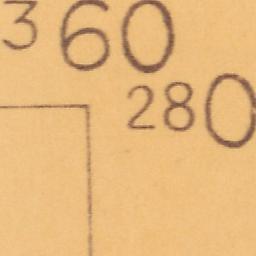 360
280